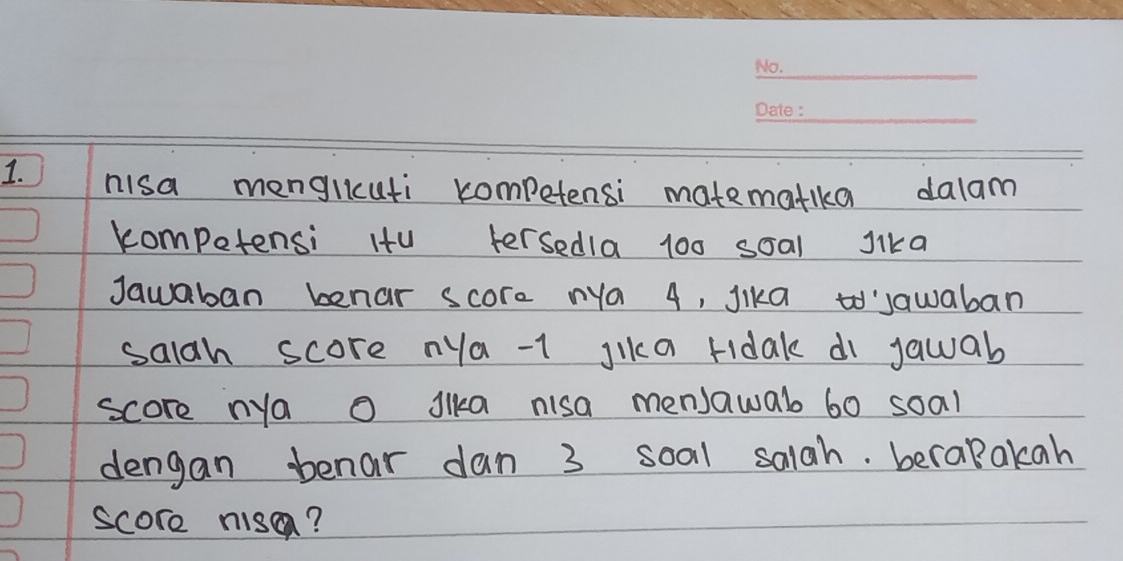 No.
Date :
1. nisa mengikuti kompetensi matematika dalam
kompetensi itu tersedia 100 soal jika
Jawaban benar score nya 4, jika jawaban
salah score nya -1 jika tidak di jawab
score nya 0 jika nisa menjawab 60 soal
dengan benar dan 3 soal salah. berapakah
score nisa?